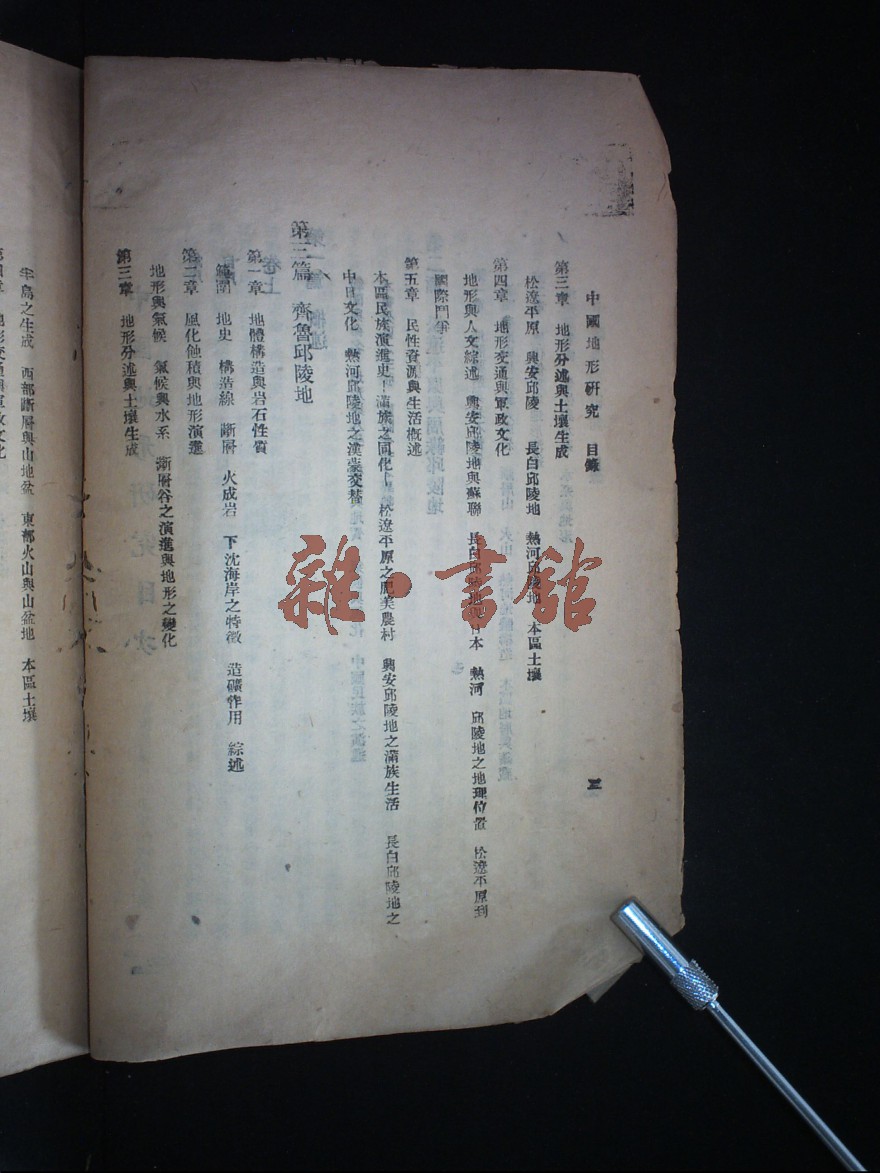 中國地形研究　目錄　三
第三章　地形分述與土壤生成
松遼平原　興安邱陵　長白邱陵地　熱河邱陵地　本區土壤
第四章　地形交通與軍政文化
地形與人文綜述　興安邱陵地與蘇聯　長白邱陵地與日本　熱河　邱陵地之地理位置　松遼平原到
國際鬥爭
第五章　民性資源與生活概述
本區民族演進史—滿族之同化—　松遼平原之肥美農村　興安邱陵地之滿族生活　長白邱陵地之
中日文化　熱河邱陵地之漢蒙交替
第三篇　齊魯邱陵地
第一章　地體構造與岩石性質
範圍　地史　構造線　斷層　火成岩　下沈海岸之特徵　造礦作用　綜述
第二章　風化蝕積與地形演進
地形與氣候　氣候與水系　斷層谷之演進與地形之變化
第三章　地形分述與土壤生成
半島之生成　西部斷層與山地盆　東部火山與山盆地　本區土壤
雜·書館